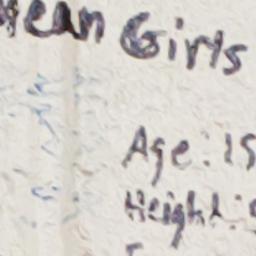 Mean Girls
Age: 15
Height: